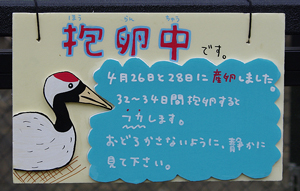 ほう らん ちゅう
抱卵中です。
4月26日と28日に産卵しました。
32〜34日間抱卵すると
フ化します。
おどろかさないように、静かに
見て下さい。